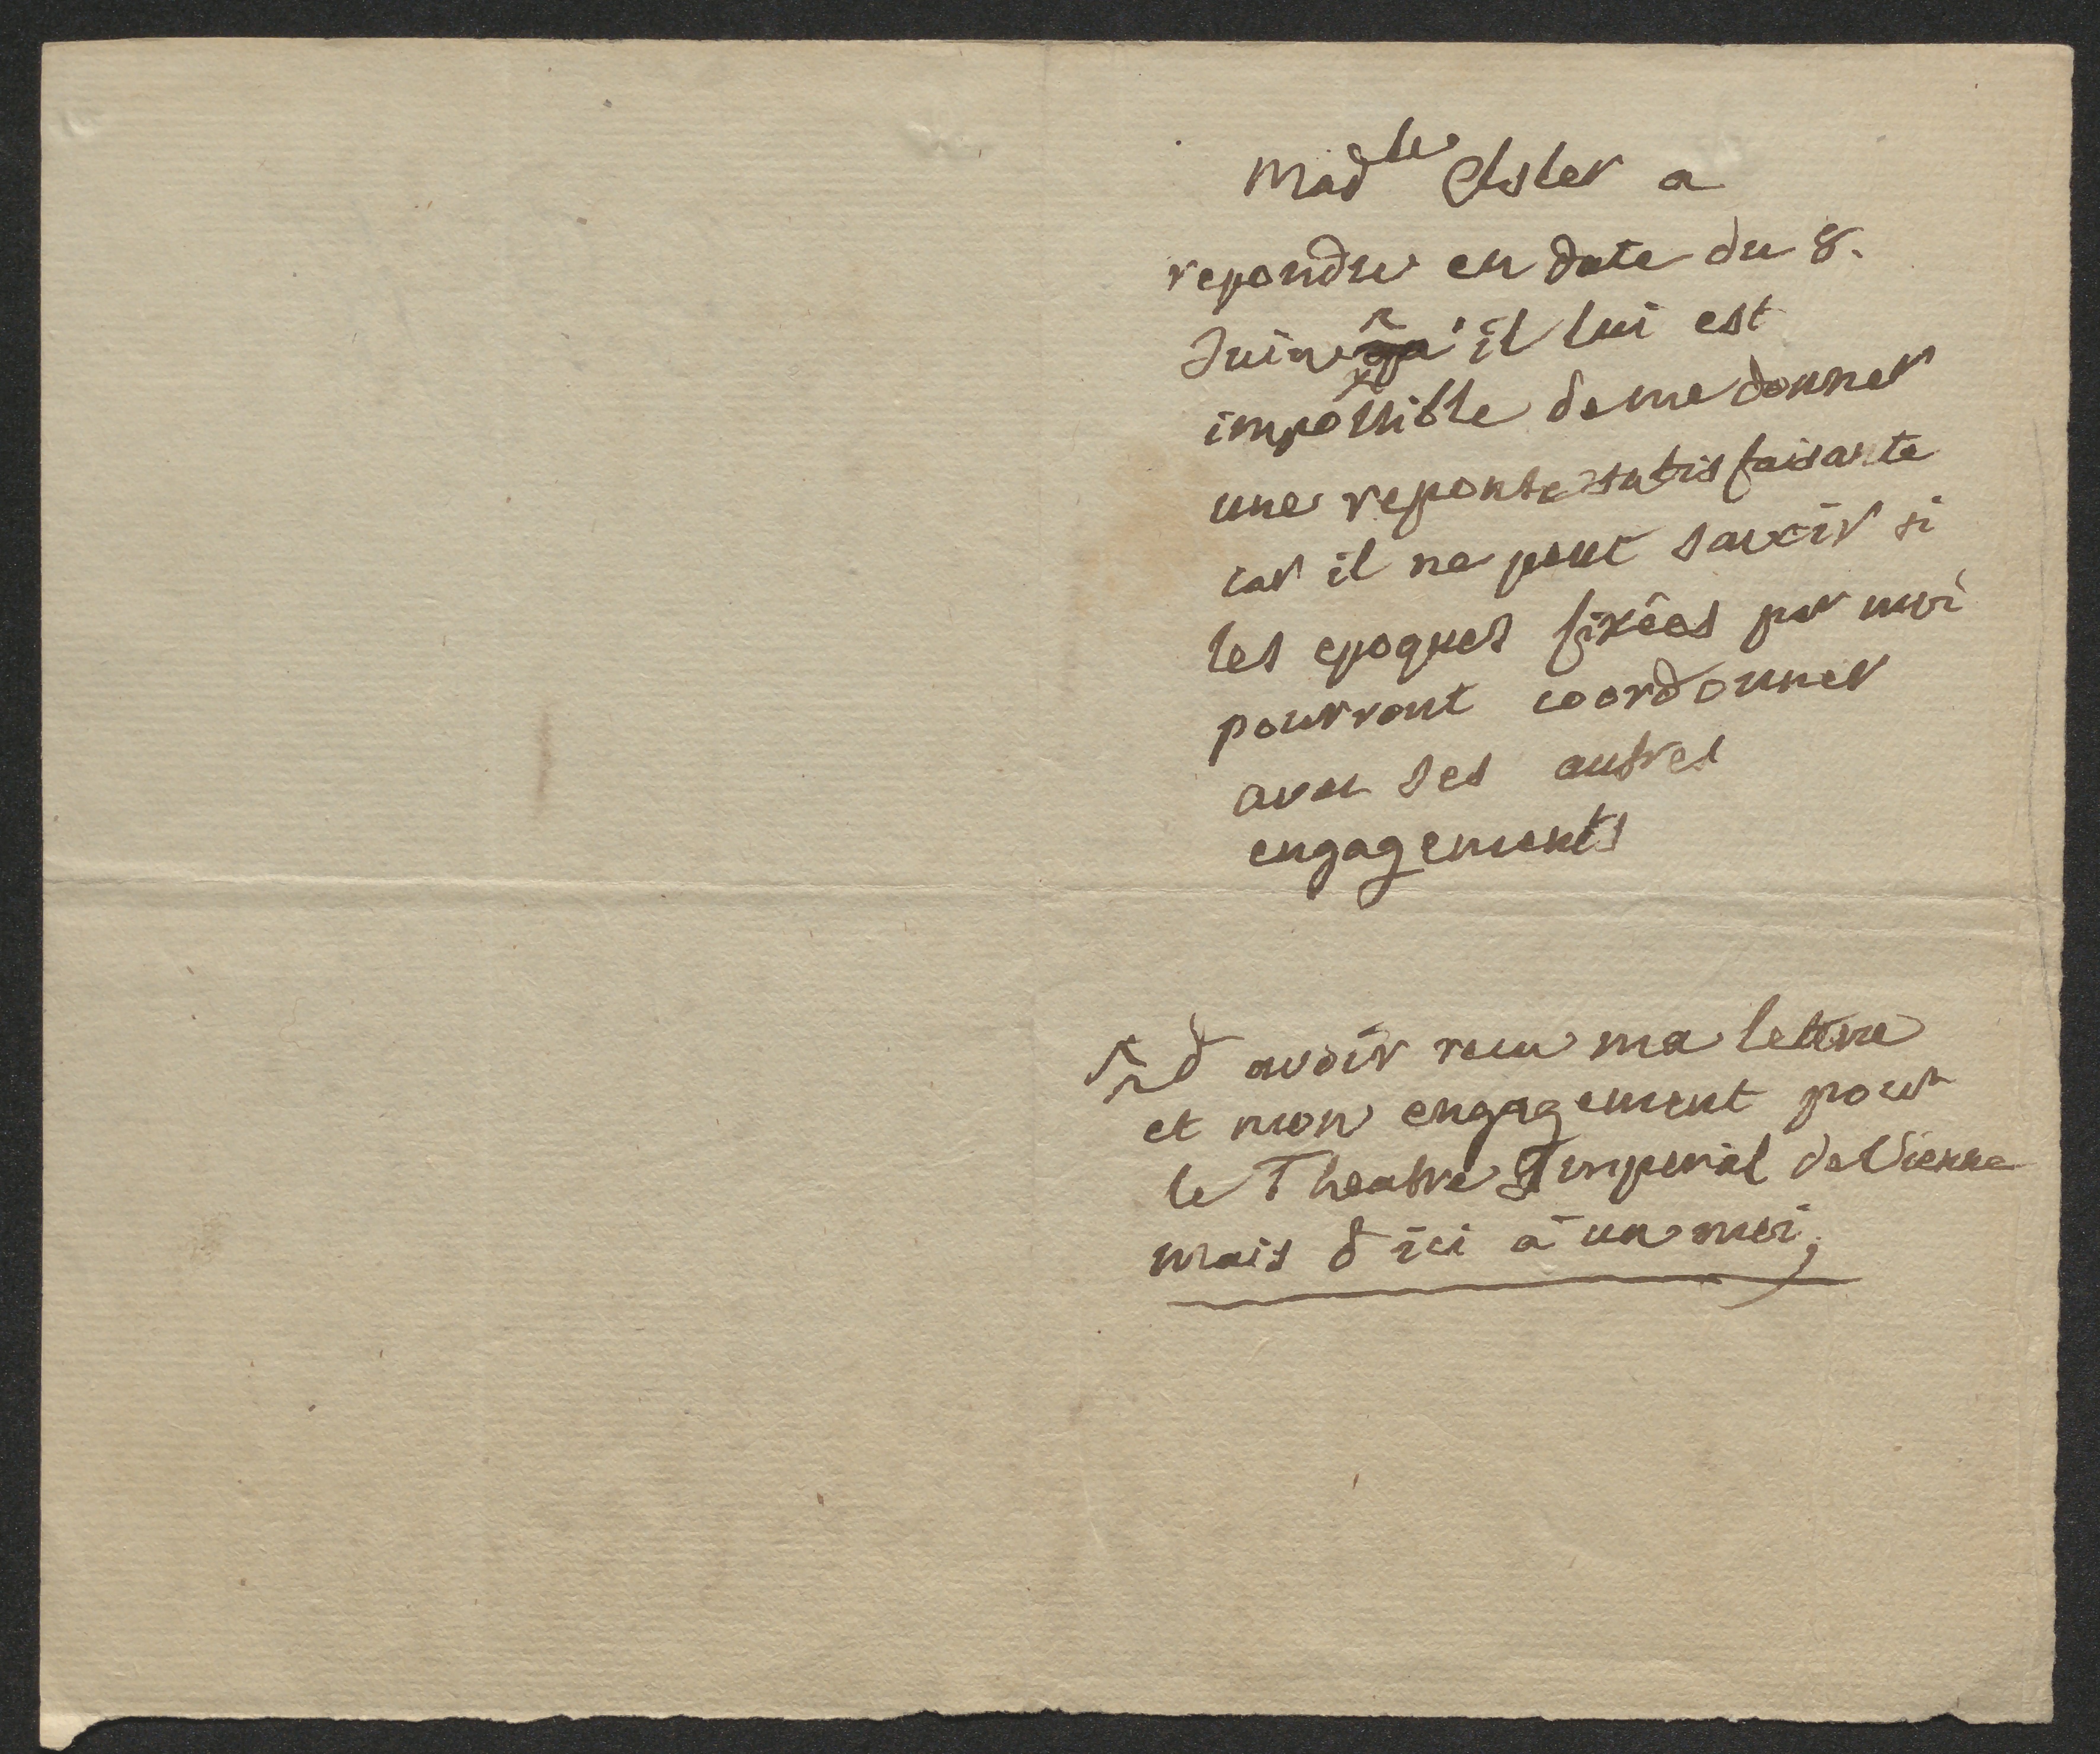 Mad^le Elsler a
repondu en date du 8.
Juin qu'il lui est
impossible de me donner
une reponse satisfaisante
car il ne peut savoir si
les epoques fixées par moi
pourront coordonner
avec ses autres
engagements
d avoir recu ma lettre
et mon engagement pour
le Theatre Imperial de Vienne
mais d ici a un moi,